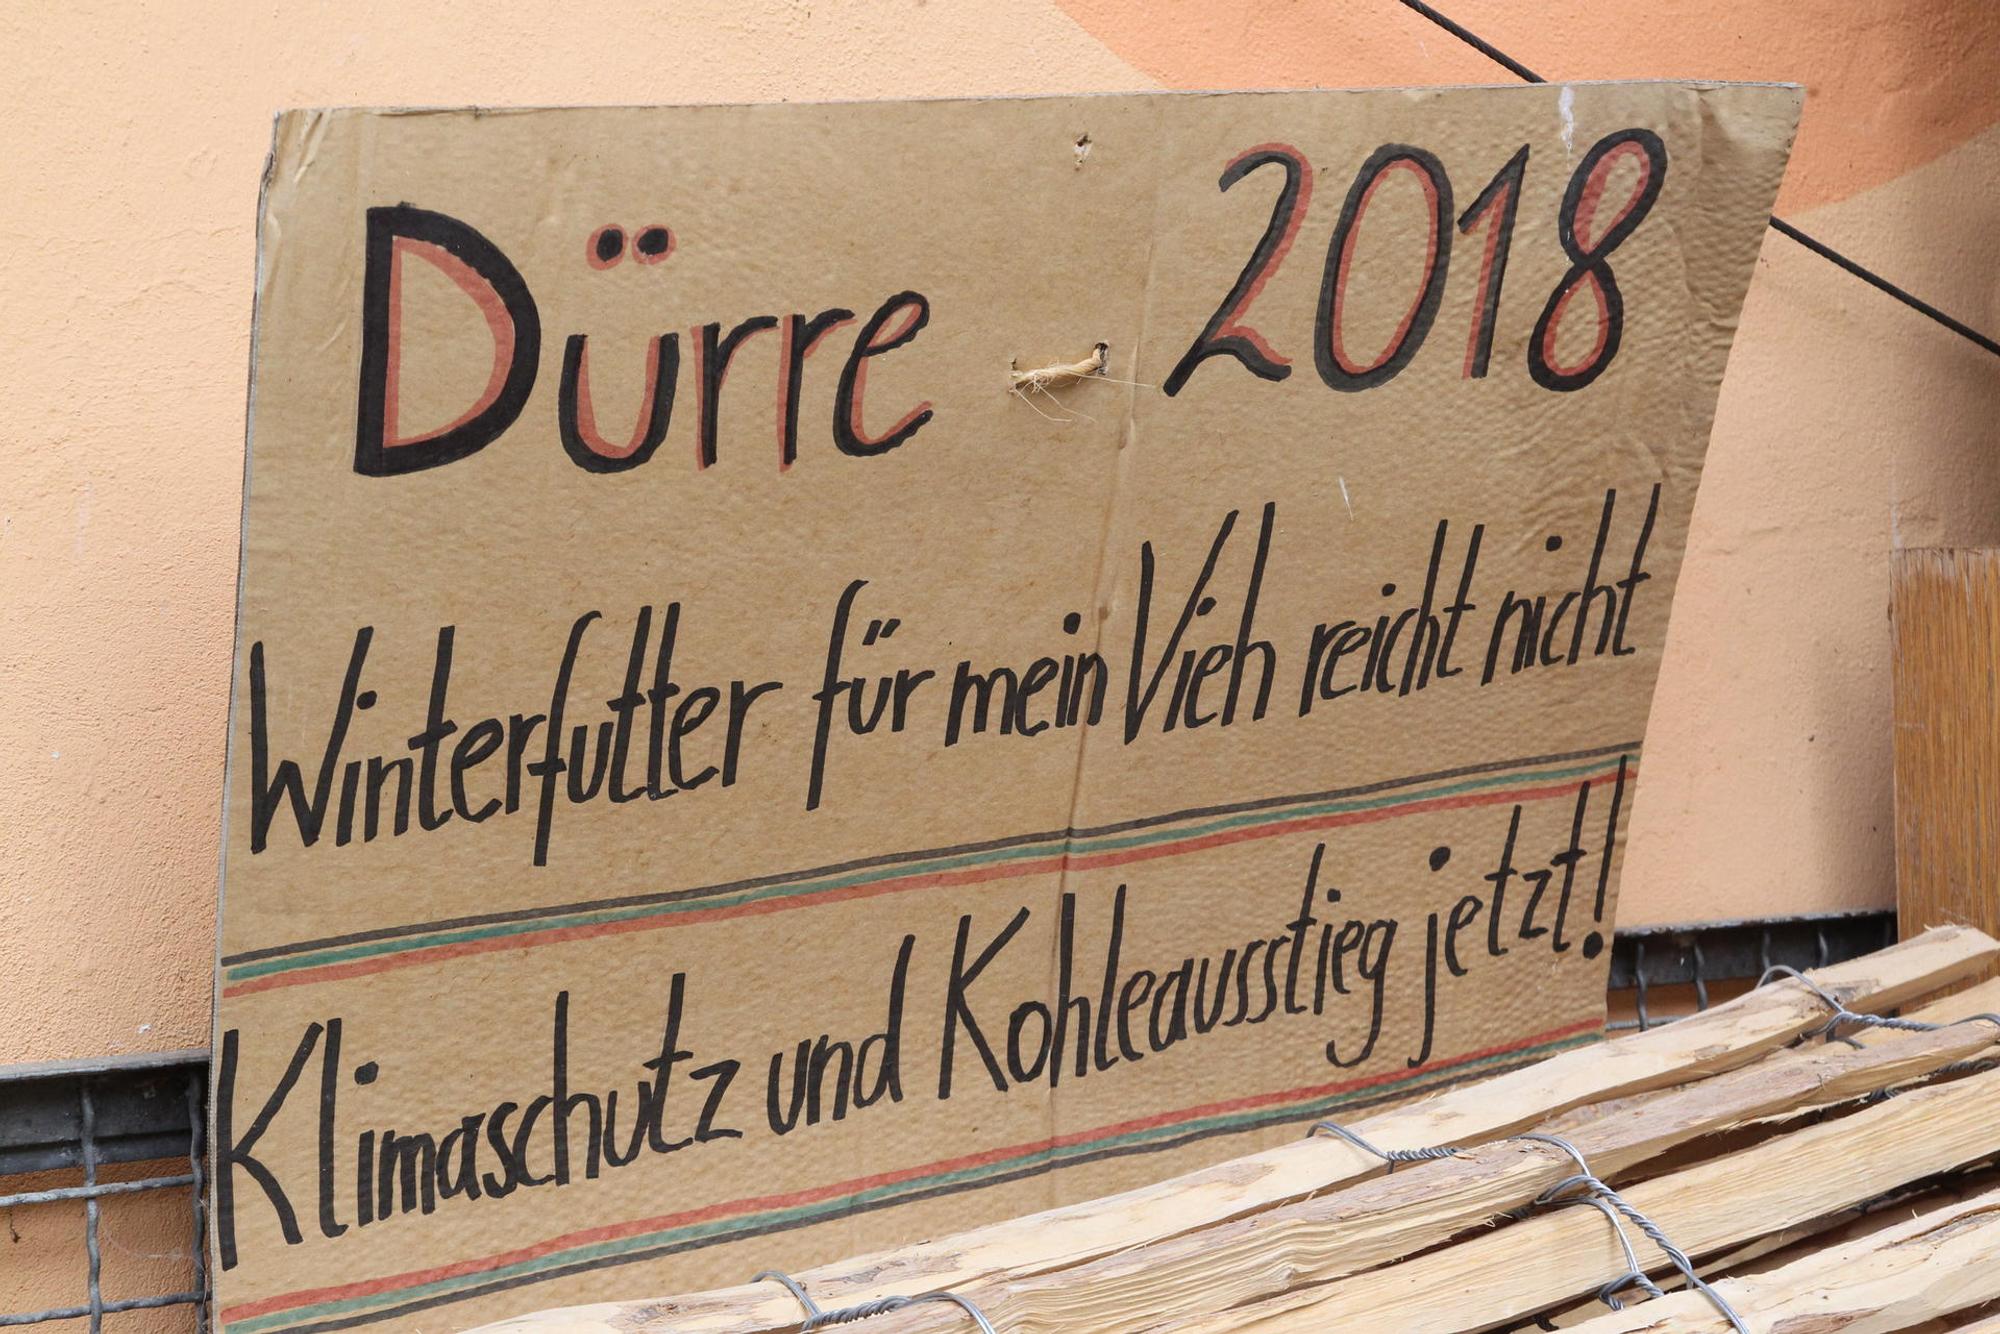 Dürre - 2018
Winterfutter für mein Vieh reicht nicht
Klimaschutz und Kohleausstieg jetzt!